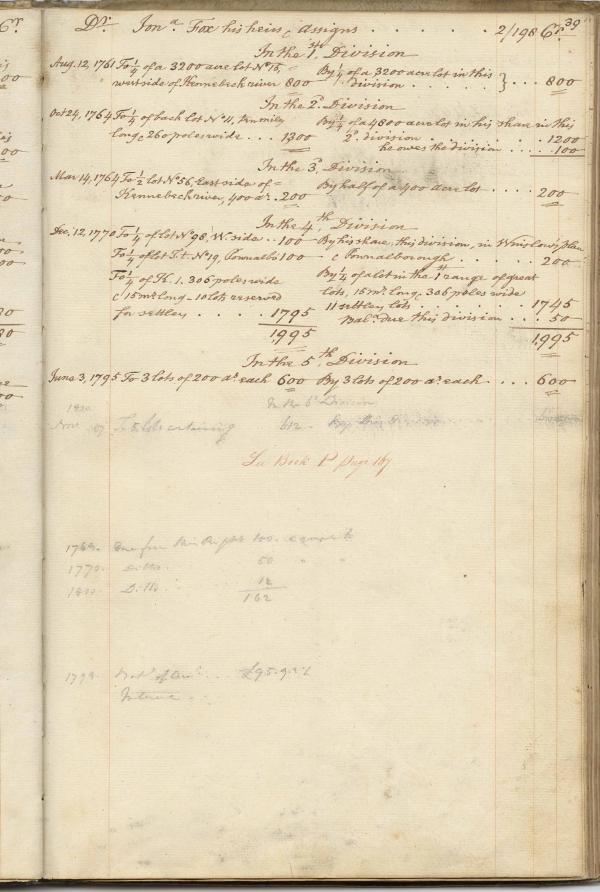 39
Dr. Jona. Fox his heirs & assigns . . . . . 2/198 Cr.
In the 1st. Division
Aug. 12, 1761 To 1/4 of a 3200 acre lot No 15, = By 1/4 of a 3200 acre lot in this
west side of Kennebeck river 800 division . . . . . } . . . 800
In the 2d. Division
Oct 24, 1764 To 1/4 of back lot No 11, ten miles By 1/4 of a 4800 acre lot in his share in this
long & 260 poles wide . . . 1300 2d. division . . . . . . 1200
he owes the division . . . . 100
In the 3d. Division
Mar 14, 1764 To 1/2 lot No 56, East side of = By half of a 400 acre lot . . . . . 200
Kennebeck river, 400 as. 200
In the 4th. Division
Dec. 12, 1770 To 1/4 of lot No 98, W. side . . 100 By his share, this division, in Winslow,
To 1/4 of lot No 19, 100 & Pownalborough . . . . . 200
To 1/4 of K. 1. 306 poles wide By 1/4 of a lot in the 1st range of great
& 15 ms long - 10 lots reserved lots, 15 ms. long & 306 poles wide
for settlers . . . . . 1795 11 settlers lots . . . . . 1745
Bale. due this division . . . . 50
1,995 1,995
In the 5th. Division
June 3, 1795 To 3 lots of 200 as. each 600 By 3 lots of 200 as. each . . . . 600
In the 6th Division
Nov To 5 lots containing 612 By this Division
See Book page 167
Due from this
1770. Ditto 50 " "
Ditto 12
162